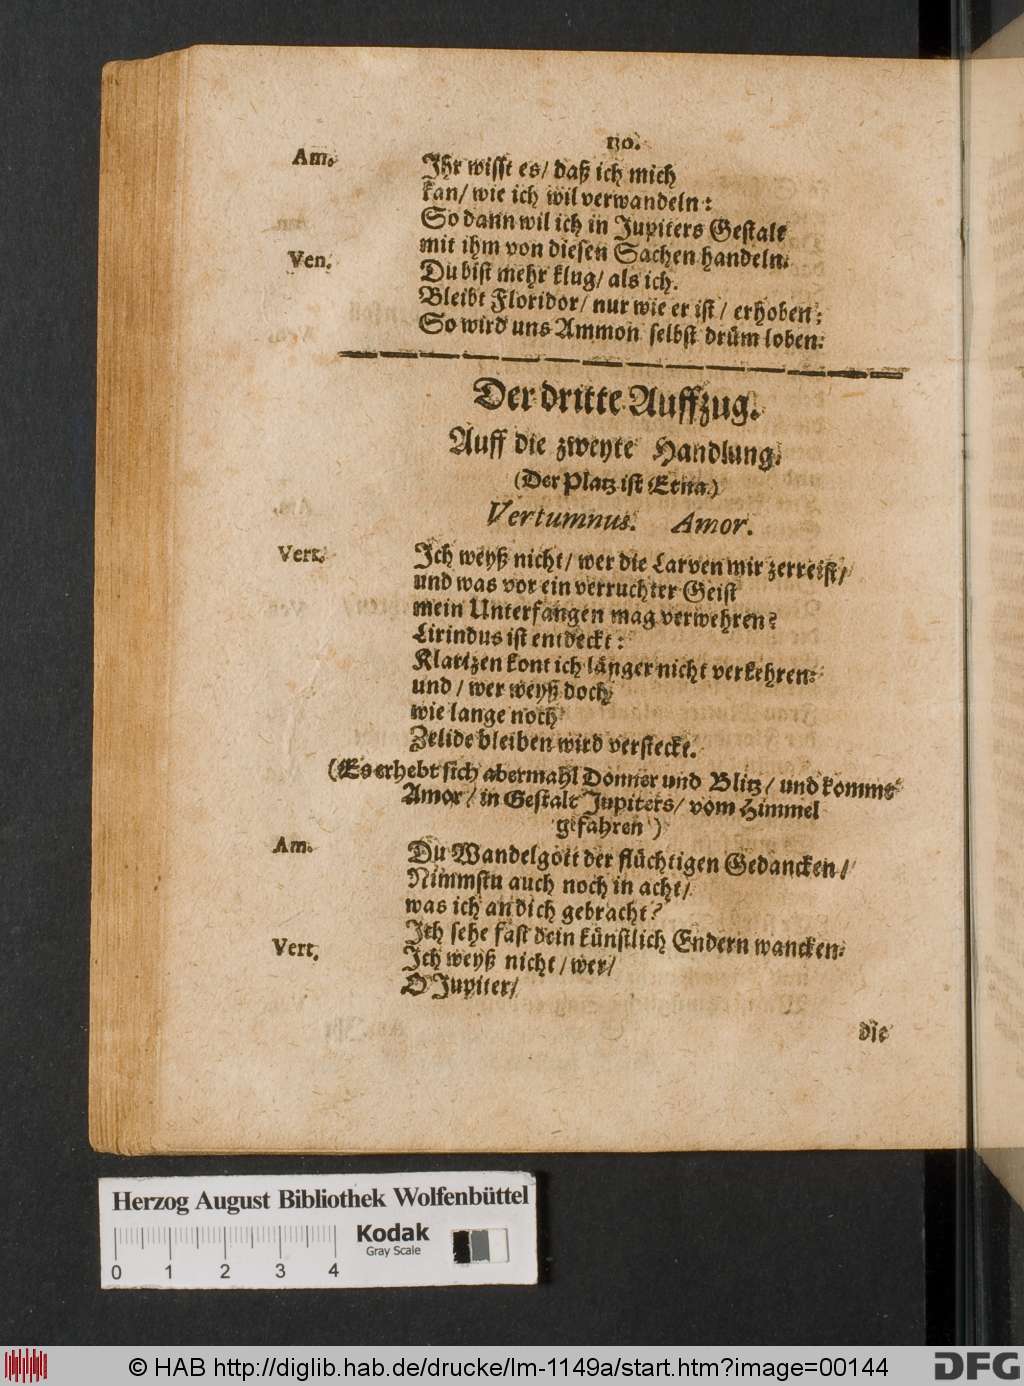 130.
Am. Ihr wisst es/ daß ich mich
kan/ wie ich wil verwandeln:
So dann wil ich in Jupiters Gestalt
mit ihm von diesen Sachen handeln.
Ven. Du bist mehr klug/ als ich.
Bleibt Floridor/ nur wie er ist/ erhoben;
So wird uns Ammon selbst drüm loben.
Der dritte Auffzug.
Auff die zweyte Handlung.
(Der Platz ist Etna.)
Vertumnus. Amor.
Vert. Ich weyß nicht/ wer die Larven mir zerreist/
und was vor ein verruchter Geist
mein Unterfangen mag verwehren?
Lirindus ist entdeckt:
Klarizen kont ich länger nicht verkehren:
und/ wer weyß doch
wie lange noch
Zelide bleiben wird versteckt.
(Es erhebt sich abermahl Donner und Blitz/ und kommt
Amor/ in Gestalt Jupiters/ vom Himmel
gefahren)
Am. Du Wandelgott der flüchtigen Gedancken/
Nimmstu auch noch in acht/
was ich an dich gebracht?
Ich sehe fast dein künstlich Endern wancken.
Vert. Ich weyß nicht/ wer/
O Jupiter/
die
Herzog August Bibliothek Wolfenbüttel
Kodak
Gray Scale
0 1 2 3 4
© HAB http://diglib.hab.de/drucke/lm-1149a/start.htm?image=00144
DFG